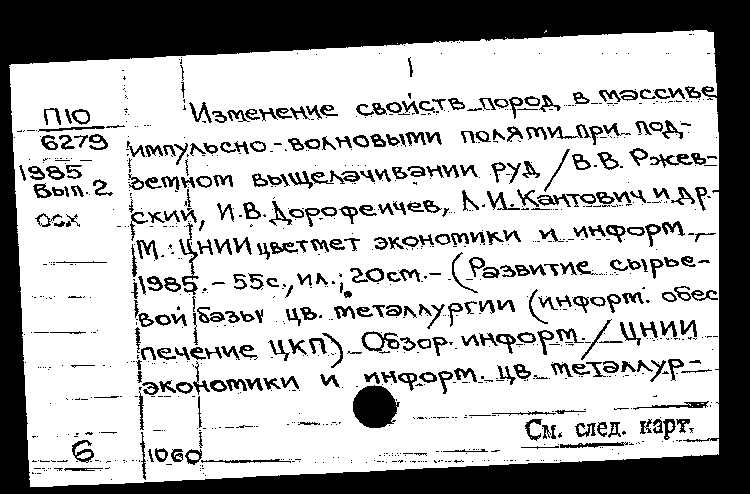 П10
6279
1985
Вып.2.
осх
Изменение свойств пород в массиве
импульсно-волновыми полями при под-
земном выщелачивании руд / В.В. Ржев-
ский, И.В. Дорофеичев, Л.И. Кантович и др.-
М.: ЦНИИцветмет экономики и информ.,
1985. - 55с., ил.; 20см. - (Развитие сырье-
вой базы цв. металлургии (информ. обес
печение ЦКП). Обзор. информ. / ЦНИИ
экономики и информ. цв. металлур-
См. след. карт.
6
1060